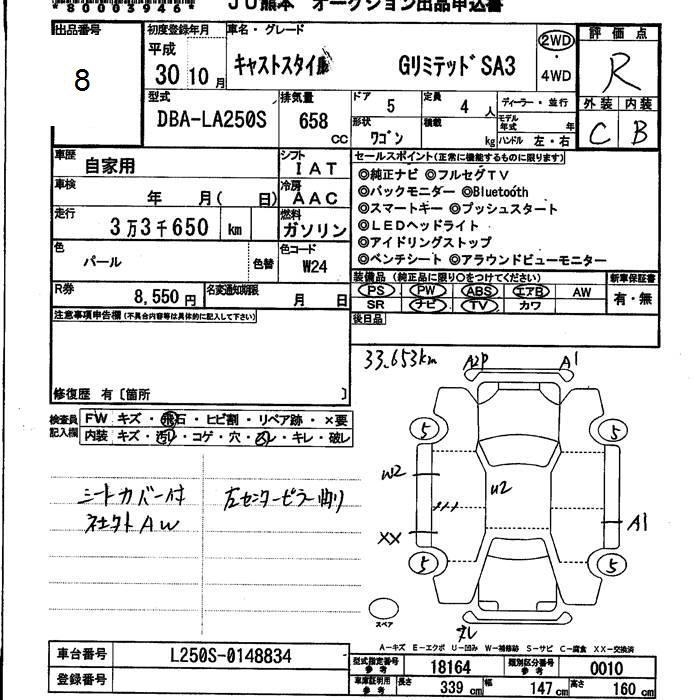 *80003946*
JU熊本 オークション出品申込書
出品番号
8
初度登録年月
平成
30 10月
車名・グレード
キャストスタイル GリミテッドSA3
2WD
・
4WD
評価点
R
外装 内装
C B
型式
DBA-LA250S
排気量
658
CC
ドア
5
定員
4 人
形状
ワゴン
積載
kg
ディーラー・並行
モデル年式
年
ハンドル 左・右
車歴
自家用
シフト
IAT
車検
年 月( 日)
冷房
AAC
走行
3万3千650 km
燃料
ガソリン
色
パール
色替
色コード
W24
R券
8,550円
名変通知期限
月 日
セールスポイント(正常に機能するものに限ります)
◎純正ナビ ◎フルセグTV
◎バックモニター ◎Bluetooth
◎スマートキー ◎プッシュスタート
◎LEDヘッドライト
◎アイドリングストップ
◎ベンチシート ◎アラウンドビューモニター
装備品(純正品に限り○をつけてください)
PS PW ABS エアB AW
SR ナビ TV カワ
新車保証書
有・無
後日品
注意事項申告欄(不具合内容等は具体的に記入して下さい)
修復歴 有〔箇所 〕
検査員
記入欄
FW キズ・飛石・ヒビ割・リペア跡・×要
内装 キズ・汚れ・コゲ・穴・スレ・キレ・破レ
シートカバー付
ネクストAW
左センターピラー曲り
33.653km
A2P
A1
5
5
W2
U2
XX
A1
5
5
スペア
A-キズ E-エクボ U-凹み W-補修跡 S-サビ C-腐食 XX-交換済
車台番号
L250S-0148834
登録番号
型式指定番号
参考
18164
類別区分番号
参考
0010
車庫証明用
参考
長さ
339 cm
幅
147 cm
高さ
160 cm